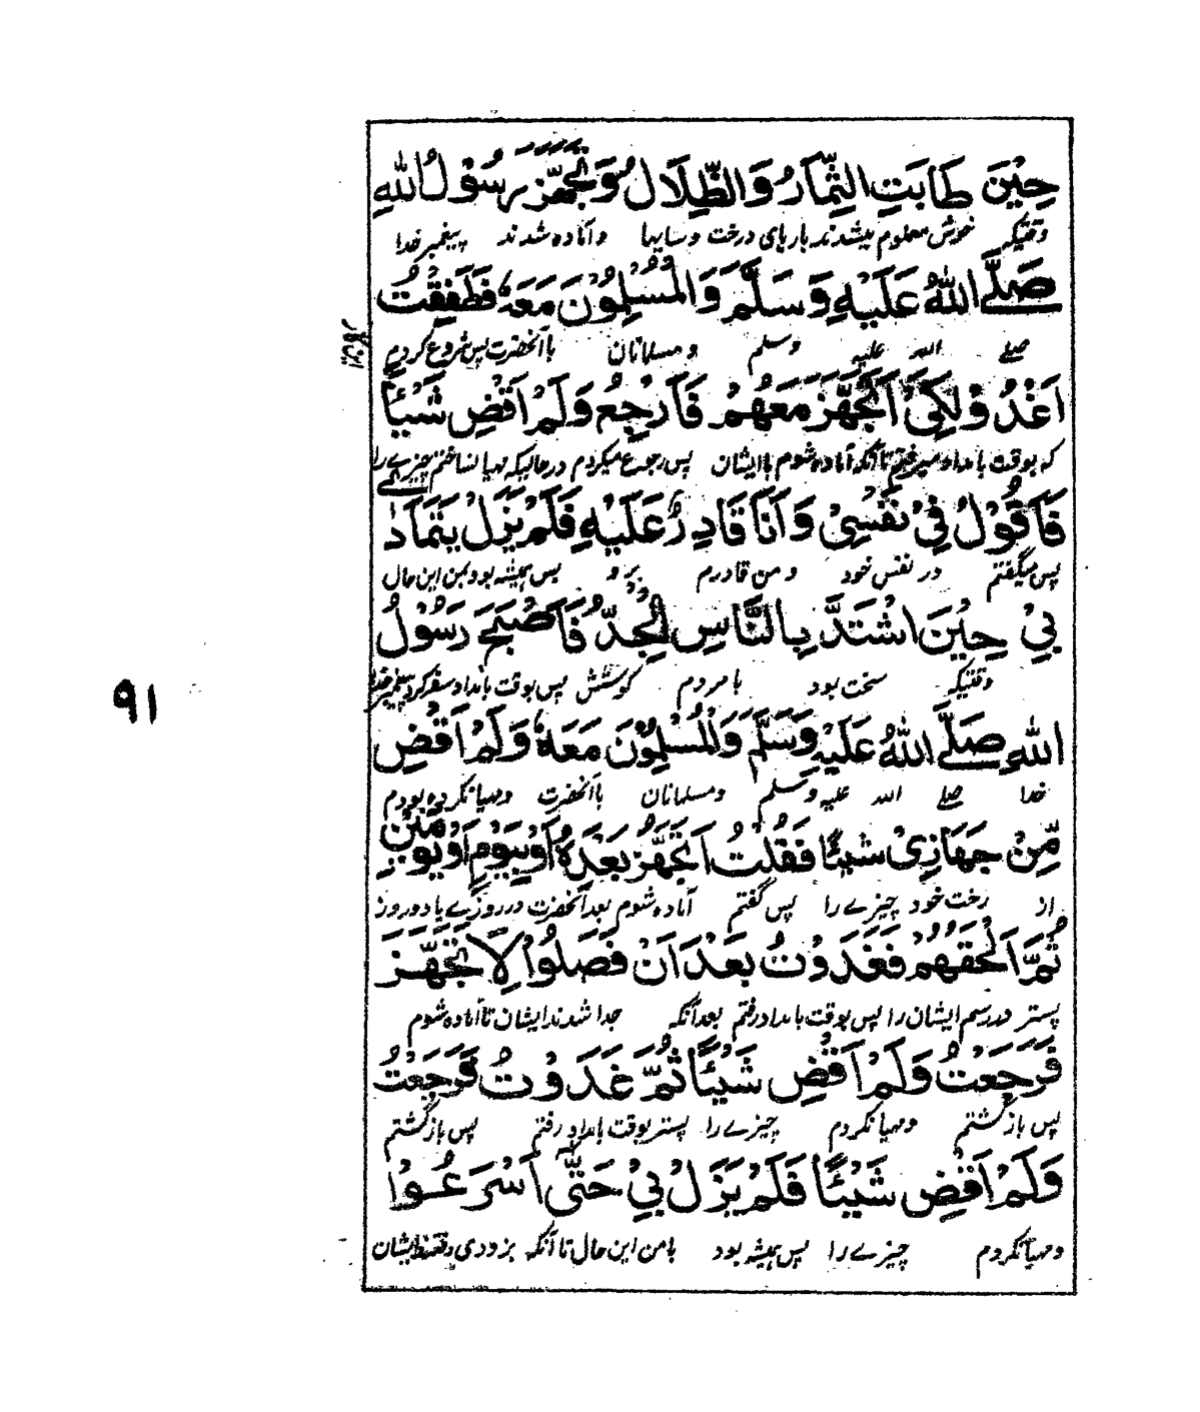 حِيْنَ طَابَتِ الثِّمَارُ وَالظِّلَالُ وَتَجَهَّزَ رَسُوْلُ اللهِ
وقتیکه خوش معلوم میشدند بارهای درخت و سایها و آماده شدند پیغمبر خدا
صَلَّے اللهُ عَلَيْهِ وَسَلَّمَ وَالْمُسْلِمُوْنَ مَعَهٗ فَطَفِقْتُ
صلے الله علیه وسلم و مسلمانان با آنحضرت پس شروع کردم
اَغْدُوْ لِكَيْ اَتَجَهَّزَ مَعَهُمْ فَاَرْجِعُ وَلَمْ اَقْضِ شَيْئًا
که بوقت بامداد میرفتم تا آنکه آماده شوم با ایشان پس رجوع میکردم در حالیکه مهیا نساختم چیزے را
فَاَقُوْلُ فِيْ نَفْسِيْ وَاَنَا قَادِرٌ عَلَيْهِ فَلَمْ يَزَلْ يَتَمَادٰى
پس میگفتم در نفس خود و من قادرم برو پس همیشه بود بمن این حال
بِيْ حِيْنَ اشْتَدَّ بِالنَّاسِ الْجِدُّ فَاَصْبَحَ رَسُوْلُ
وقتیکه سخت بود با مردم کوشش پس بوقت بامداد سفر کرد پیغمبر خدا
اللهِ صَلَّے اللهُ عَلَيْهِ وَسَلَّمَ وَالْمُسْلِمُوْنَ مَعَهٗ وَلَمْ اَقْضِ
خدا صلے الله علیه وسلم و مسلمانان با آنحضرت و مهیا نکرده بودم
مِّنْ جَهَازِيْ شَيْئًا فَقُلْتُ اَتَجَهَّزُ بَعْدَهٗ اَوْ بِيَوْمٍ اَوْ يَوْمَيْنِ
از رخت خود چیزے را پس گفتم آماده شوم بعد آنحضرت در روزے یا دو روز
ثُمَّ اَلْحَقُهُمْ فَغَدَوْتُ بَعْدَ اَنْ فَصَلُوْا لِاَتَجَهَّزَ
پستر در رسم ایشان را پس بوقت بامداد رفتم بعد آنکه جدا شدند ایشان تا آماده شوم
فَرَجَعْتُ وَلَمْ اَقْضِ شَيْئًا ثُمَّ غَدَوْتُ فَرَجَعْتُ
پس باز گشتم و مهیا نکردم چیزے را پستر بوقت بامداد رفتم پس باز گشتم
وَلَمْ اَقْضِ شَيْئًا فَلَمْ يَزَلْ بِيْ حَتّٰى اَسْرَعُوْا
و مهیا نکردم چیزے را پس همیشه بود با من این حال تا آنکه بزودی رفتند ایشان
٩١